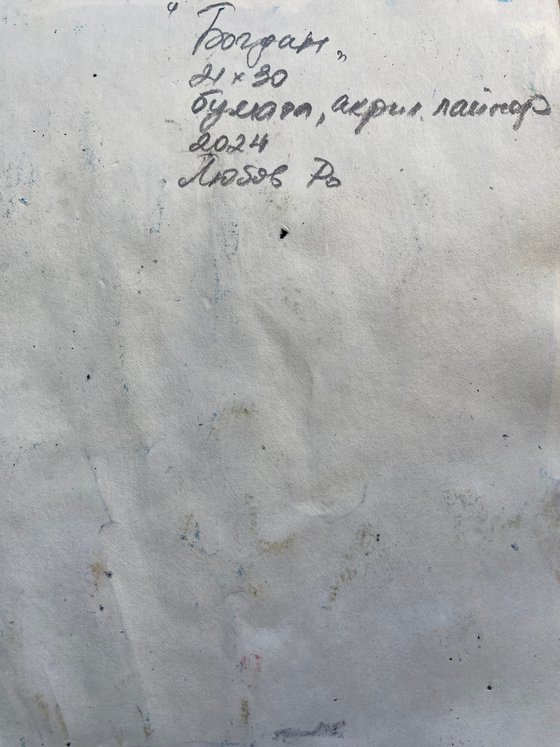 "Богдан"
21 × 30
бумага, акрил, лайнер
2024
Любовь Ро